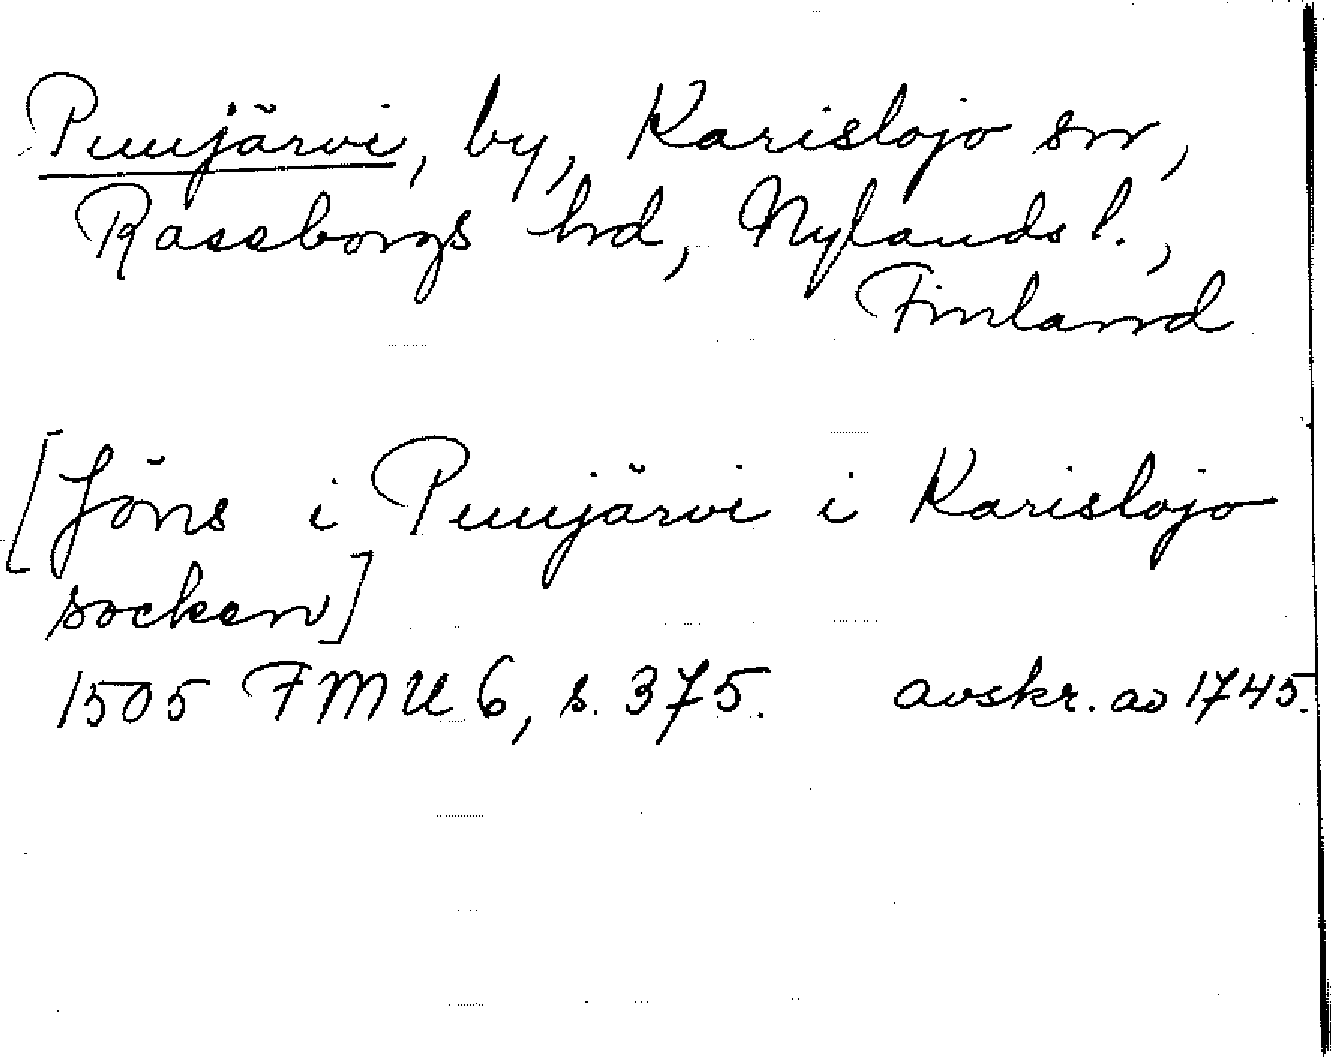 Puujärvi, by, Karislojo sn,
Raseborgs hrd, Nylands l.,
Finland
[Jöns i Puujärvi i Karislojo
socken]
1505 FMU 6, s. 375. avskr. av 1745.